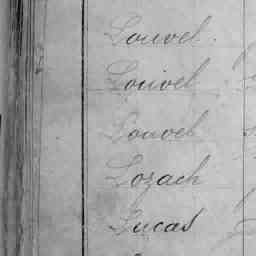 Louvel.
Louvel
Louvel
Lozach
Lucas